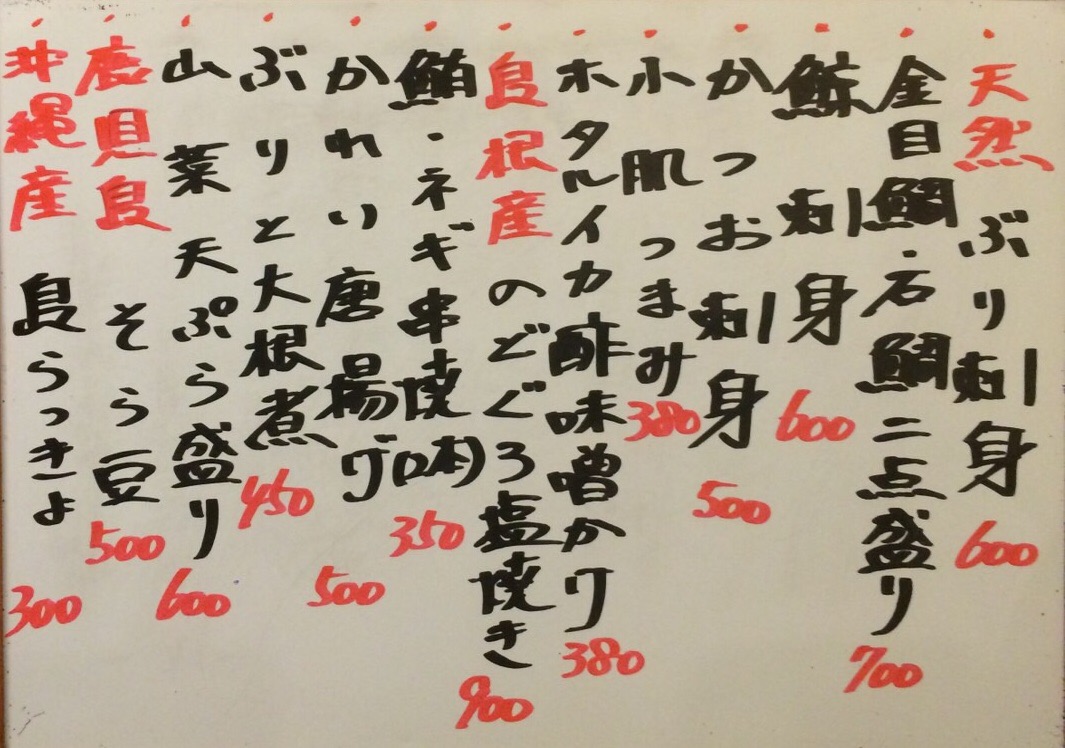 天然 ぶり刺身 600
金目鯛・石鯛二点盛り 700
鯨刺身 600
かつお刺身 500
小肌つまみ 380
ホタルイカ酢味噌かけ 380
島根産のどぐろ塩焼き 900
鮪・ネギ串焼(1本) 350
かれい唐揚げ 500
ぶりと大根煮 450
山菜天ぷら盛り 600
鹿児島 そら豆 500
沖縄産 島らっきょ 300